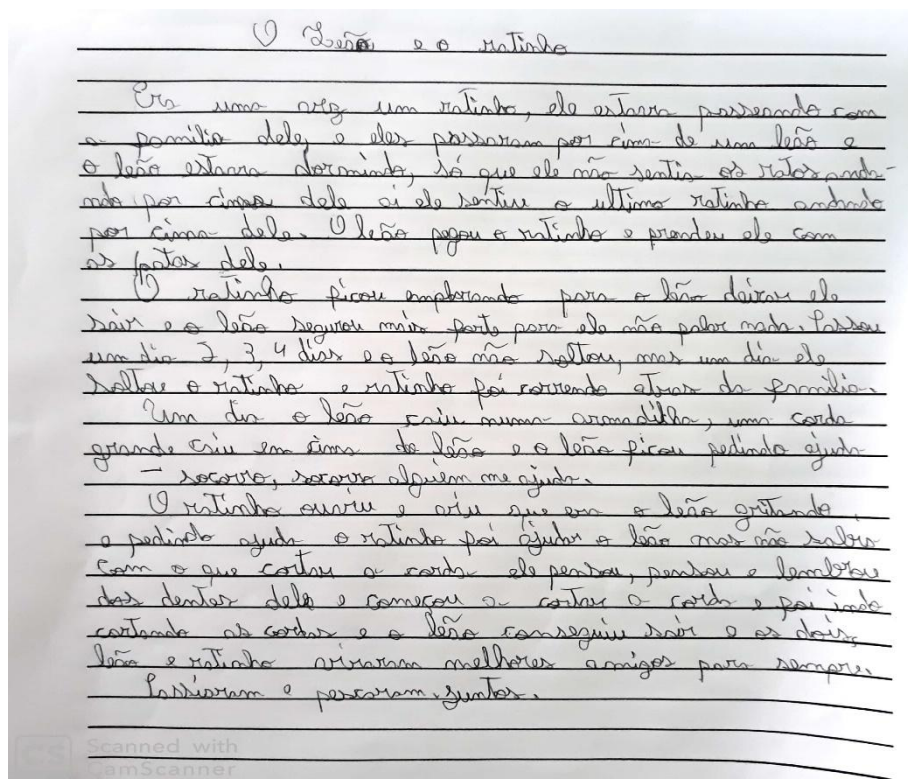 O Leão e o ratinho
Era uma vez um ratinho, ele estava passeando com
a familia dele, e eles passaram por cima de um leão e
o leão estava dormindo, só que ele não sentia os ratos anda-
ndo por cima dele ai ele sentiu o ultimo ratinho andando
por cima dele. O leão pegou o ratinho e prendeu ele com
as patas dele.
O ratinho ficou emplorando para o leão deixar ele
sair e o leão segurou mais forte para ele não falar nada. Passou
um dia 2, 3, 4 dias e o leão não soltou, mas um dia ele
soltou o ratinho e ratinho foi correndo atras da familia.
Um dia o leão caiu numa armadilha, uma corda
grande caiu em cima do leão e o leão ficou pedindo ajuda
– socorro, socorro alguém me ajuda.
O ratinho ouviu e viu que era o leão gritando
e pedindo ajuda o ratinho foi ajudar o leão mas não sabia
com o que cortar a corda ele pensou, pensou e lembrou
dos dentes dele e começou a cortar a corda e foi indo
cortando as cordas e o leão conseguiu sair e os dois,
leão e ratinho viraram melhores amigos para sempre.
Passiaram e pescaram juntos.
CS Scanned with
CamScanner